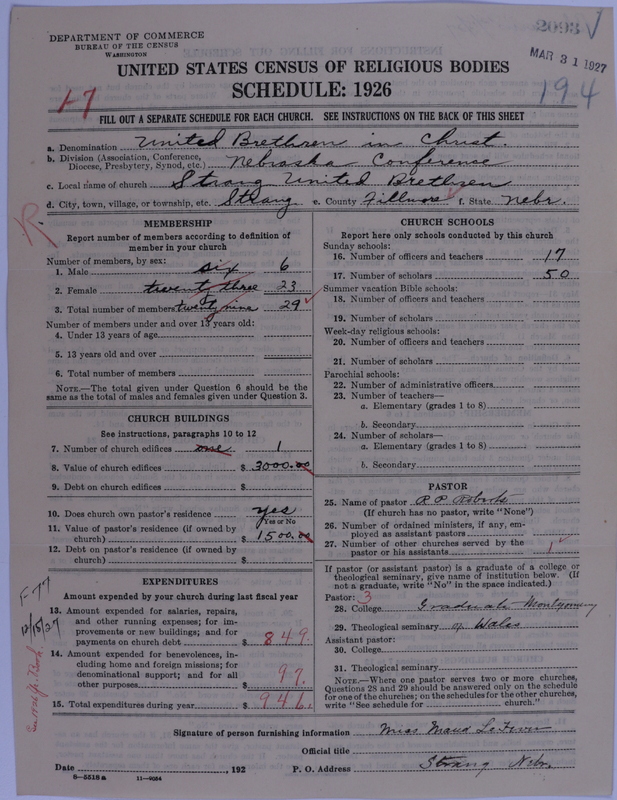 DEPARTMENT OF COMMERCE
BUREAU OF THE CENSUS
WASHINGTON
2093
MAR 31 1927
194
UNITED STATES CENSUS OF RELIGIOUS BODIES
SCHEDULE: 1926
1-7
FILL OUT A SEPARATE SCHEDULE FOR EACH CHURCH. SEE INSTRUCTIONS ON THE BACK OF THIS SHEET
a. Denomination United Brethren in Christ.
b. Division (Association, Conference, Diocese, Presbytery, Synod, etc.) Nebraska Conference
c. Local name of church Strang United Brethren
d. City, town, village, or township, etc. Strang e. County Fillmore f. State Nebr.
R
MEMBERSHIP
Report number of members according to definition of
member in your church
Number of members, by sex:
1. Male six 6
2. Female twenty three 23
3. Total number of members twenty nine 29
Number of members under and over 13 years old:
4. Under 13 years of age
5. 13 years old and over
6. Total number of members
NOTE.—The total given under Question 6 should be the
same as the total of males and females given under Question 3.
CHURCH BUILDINGS
See instructions, paragraphs 10 to 12
7. Number of church edifices one 1
8. Value of church edifices $ 3000.00
9. Debt on church edifices $
10. Does church own pastor's residence yes
Yes or No
11. Value of pastor's residence (if owned by
church) $ 1500.00
12. Debt on pastor's residence (if owned by
church) $
EXPENDITURES
Amount expended by your church during last fiscal year
F-77
12/15/27
13. Amount expended for salaries, repairs,
and other running expenses; for im-
provements or new buildings; and for
payments on church debt $ 849.
14. Amount expended for benevolences, in-
cluding home and foreign missions; for
denominational support; and for all
other purposes $ 97.
15. Total expenditures during year $ 946.
CHURCH SCHOOLS
Report here only schools conducted by this church
Sunday schools:
16. Number of officers and teachers 17
17. Number of scholars 50
Summer vacation Bible schools:
18. Number of officers and teachers
19. Number of scholars
Week-day religious schools:
20. Number of officers and teachers
21. Number of scholars
Parochial schools:
22. Number of administrative officers
23. Number of teachers—
a. Elementary (grades 1 to 8)
b. Secondary
24. Number of scholars—
a. Elementary (grades 1 to 8)
b. Secondary
PASTOR
25. Name of pastor R P Roberts
(If church has no pastor, write "None")
26. Number of ordained ministers, if any, em-
ployed as assistant pastors
27. Number of other churches served by the
pastor or his assistants 1
If pastor (or assistant pastor) is a graduate of a college or
theological seminary, give name of institution below. (If
not a graduate, write "No" in the space indicated.)
Pastor: 3
28. College Graduate Montgomery
29. Theological seminary of Wales
Assistant pastor:
30. College
31. Theological seminary
NOTE.—Where one pastor serves two or more churches,
Questions 28 and 29 should be answered only on the schedule
for one of the churches; on the schedules for the other churches,
write "See schedule for church."
Signature of person furnishing information Miss Maud LeFever
Official title
Date , 192 P. O. Address Strang Nebr.
8—5518 a 11—9054